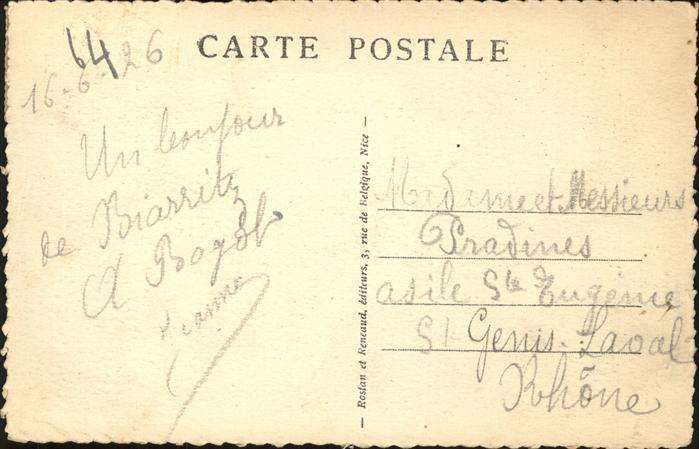 CARTE POSTALE
64
16-6-26
Un bonjour
de Biarritz
Jeanne
Rostan et Reneaud, éditeurs, 3, rue de Belgique, Nice
Madame et Messieurs
Pradines
asile Ste Eugénie
St Genis-Laval
Rhône